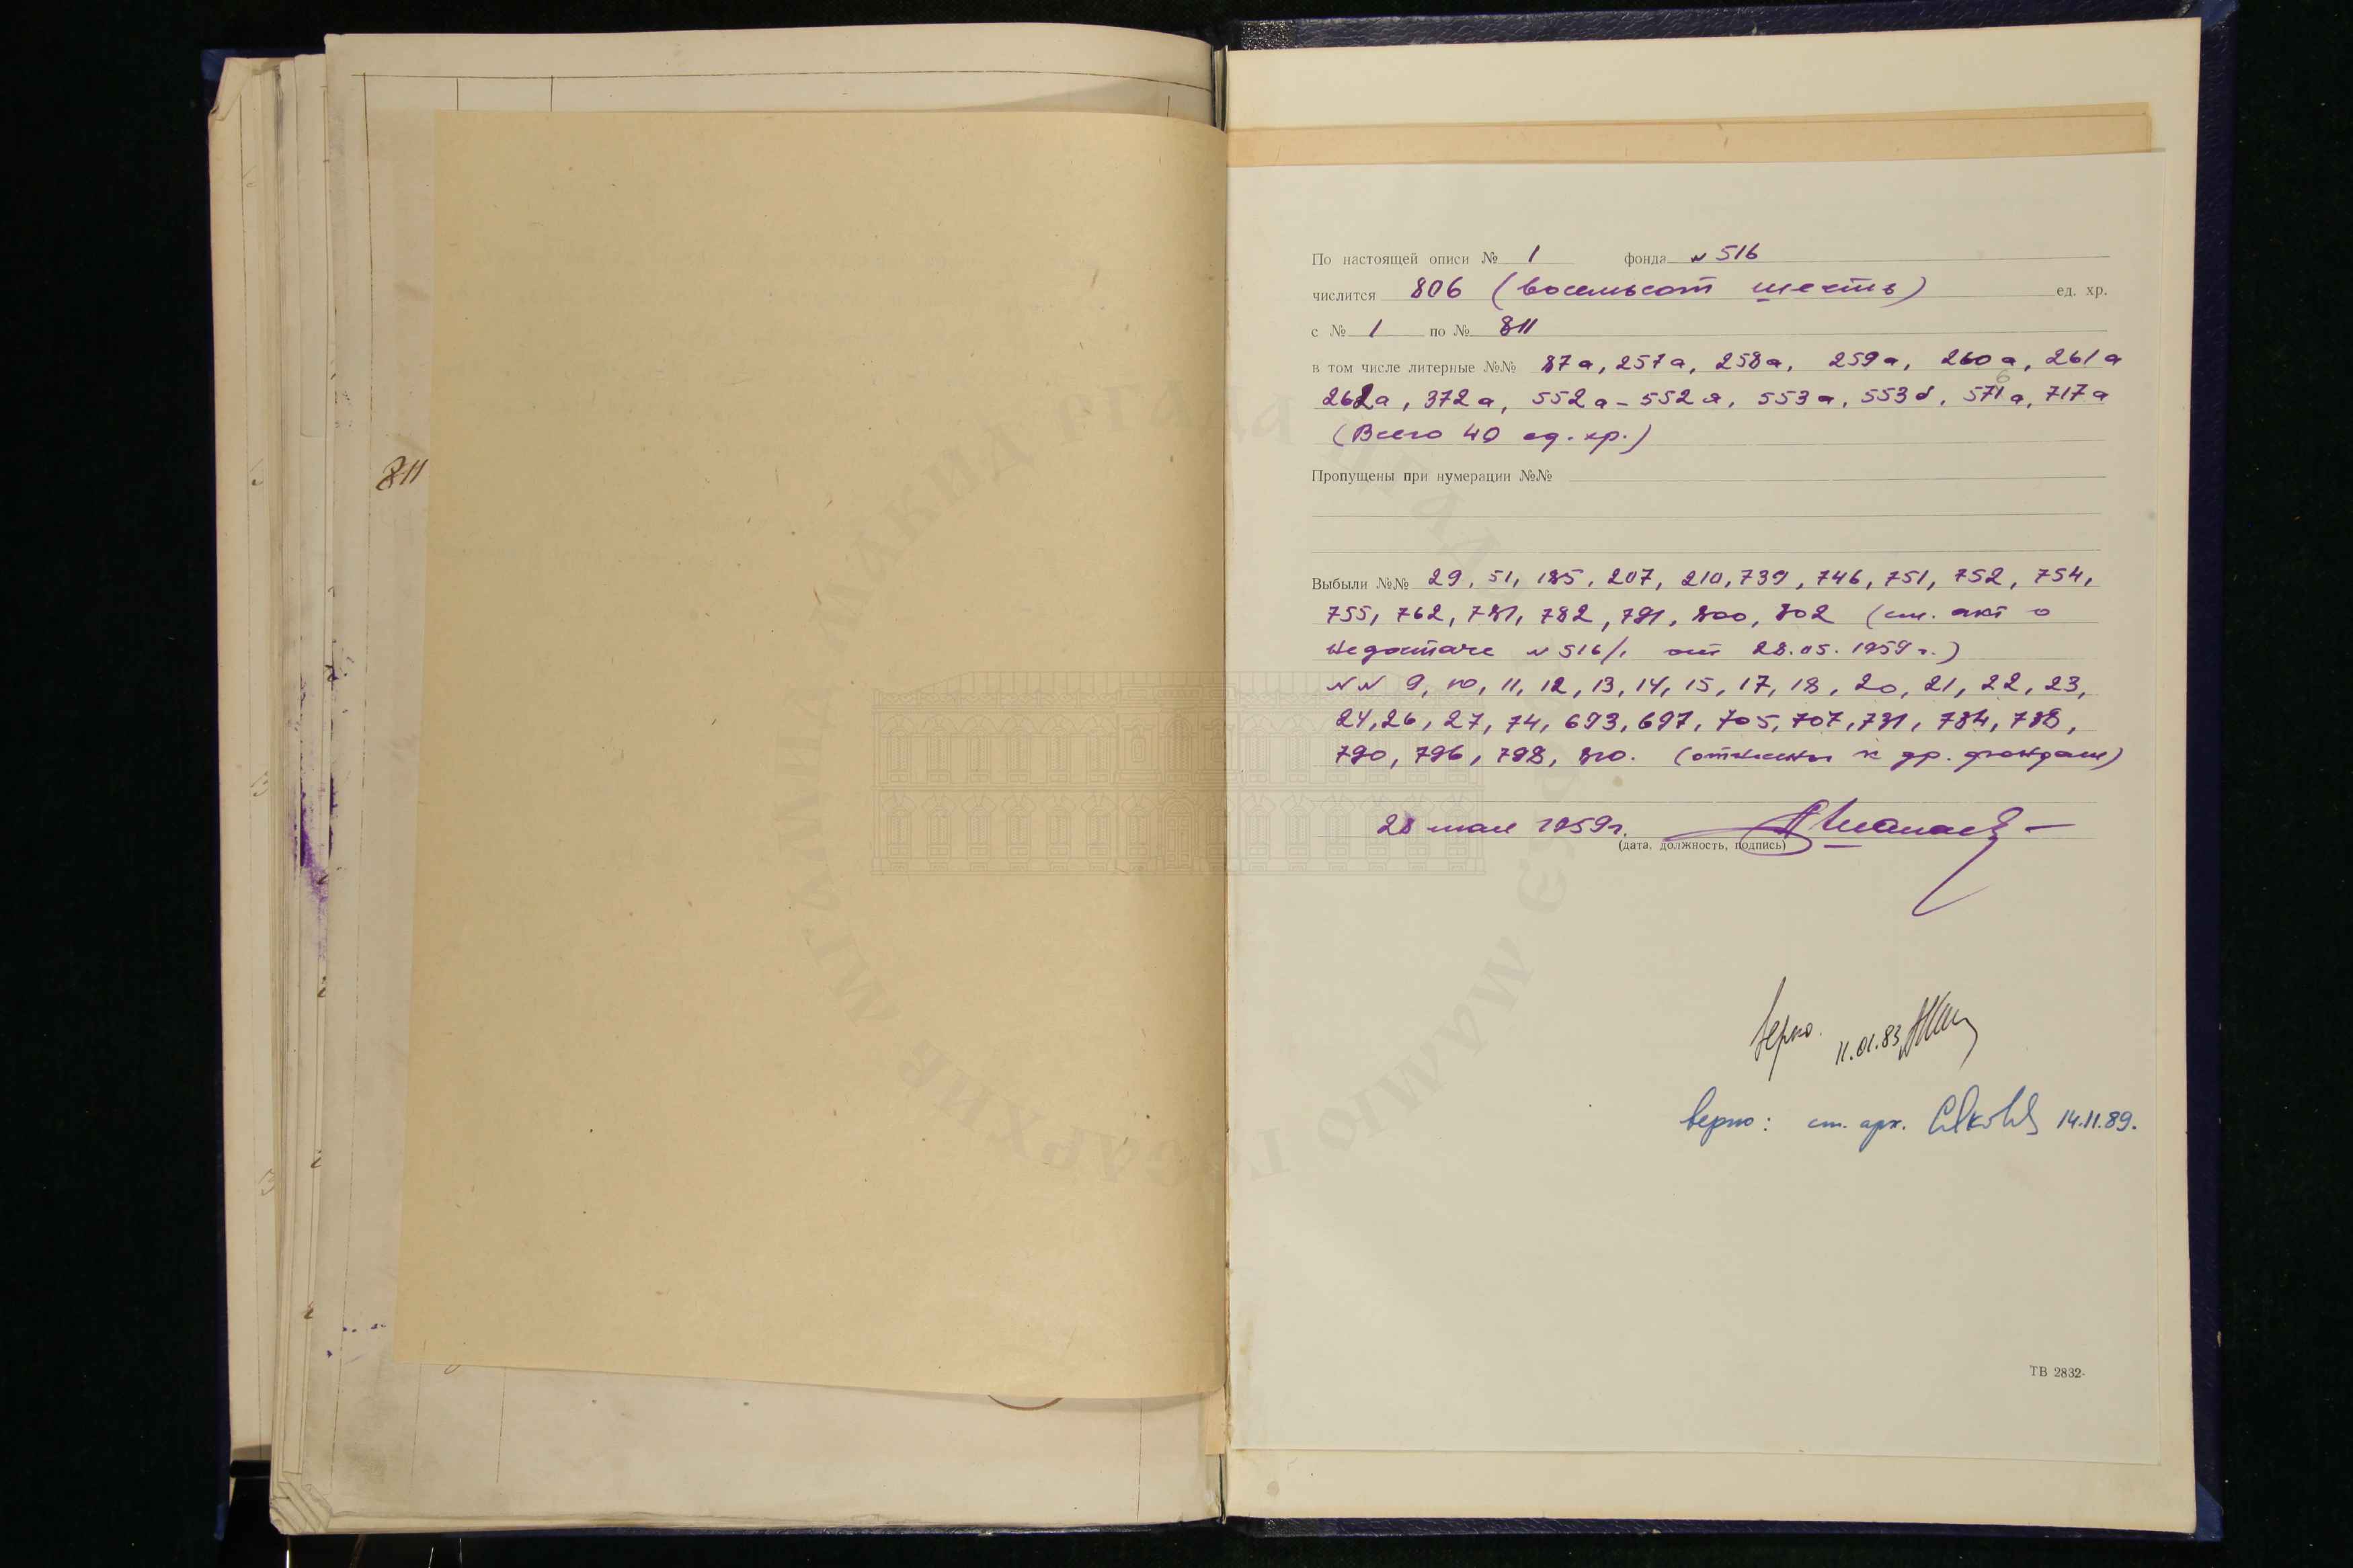 811
По настоящей описи № 1 фонда № 516
числится 806 (восемьсот шесть) ед. хр.
с № 1 по № 811
в том числе литерные №№ 87а, 257а, 258а, 259а, 260а, 261а
262а, 372а, 552а - 552я, 553а, 553б, 571а, 717а
(Всего 40 ед. хр.)
Пропущены при нумерации №№
Выбыли №№ 29, 51, 185, 207, 210, 739, 746, 751, 752, 754,
755, 762, 781, 782, 791, 800, 802 (см. акт о
недостаче № 516/1 от 28.05.1959 г.)
№№ 9, 10, 11, 12, 13, 14, 15, 17, 18, 20, 21, 22, 23,
24, 26, 27, 74, 693, 697, 705, 707, 731, 784, 788,
790, 796, 798, 810. (отнесены к др. фондам)
28 мая 1959г.
(дата, должность, подпись)
Верно. 11.01.83
Верно: ст. арх. 14.11.89.
ТВ 2832